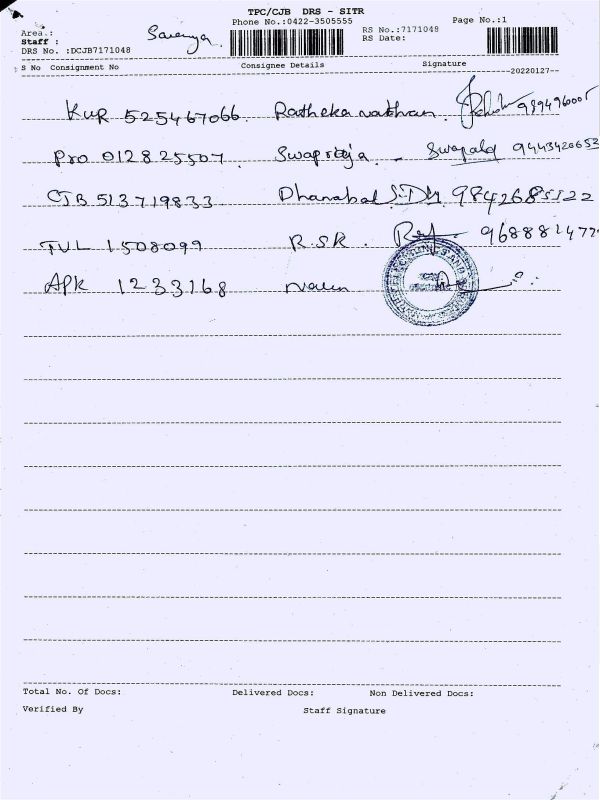 TPC/CJB DRS - SITR
Phone No.:0422-3505555
Page No.:1
Area.:
Staff :
Saranya
DRS No. :DCJB7171048
RS No.:7171048
RS Date:
S No Consignment No Consignee Details Signature
20220127
KUR 525467066
PRO 012825507 Swaprooja
CJB 513719833 Dhanabal 9842685522
TUL 1508099 R.S.R. 968881477
APK 1233168 Naven
Total No. Of Docs: Delivered Docs: Non Delivered Docs:
Verified By Staff Signature